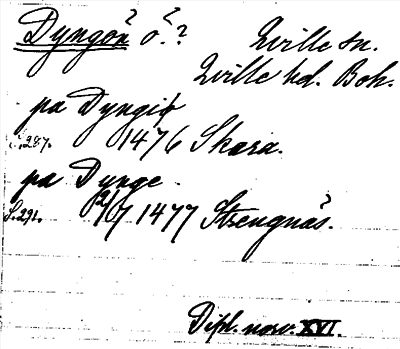 Dyngön ö.? Qville sn.
Qville hd. Boh.
pa Dyngiø
S. 287. 1476 Skara.
pa Dynge
S. 291. 2/7 1477 Strengnäs.
Dipl. norv. XVI.